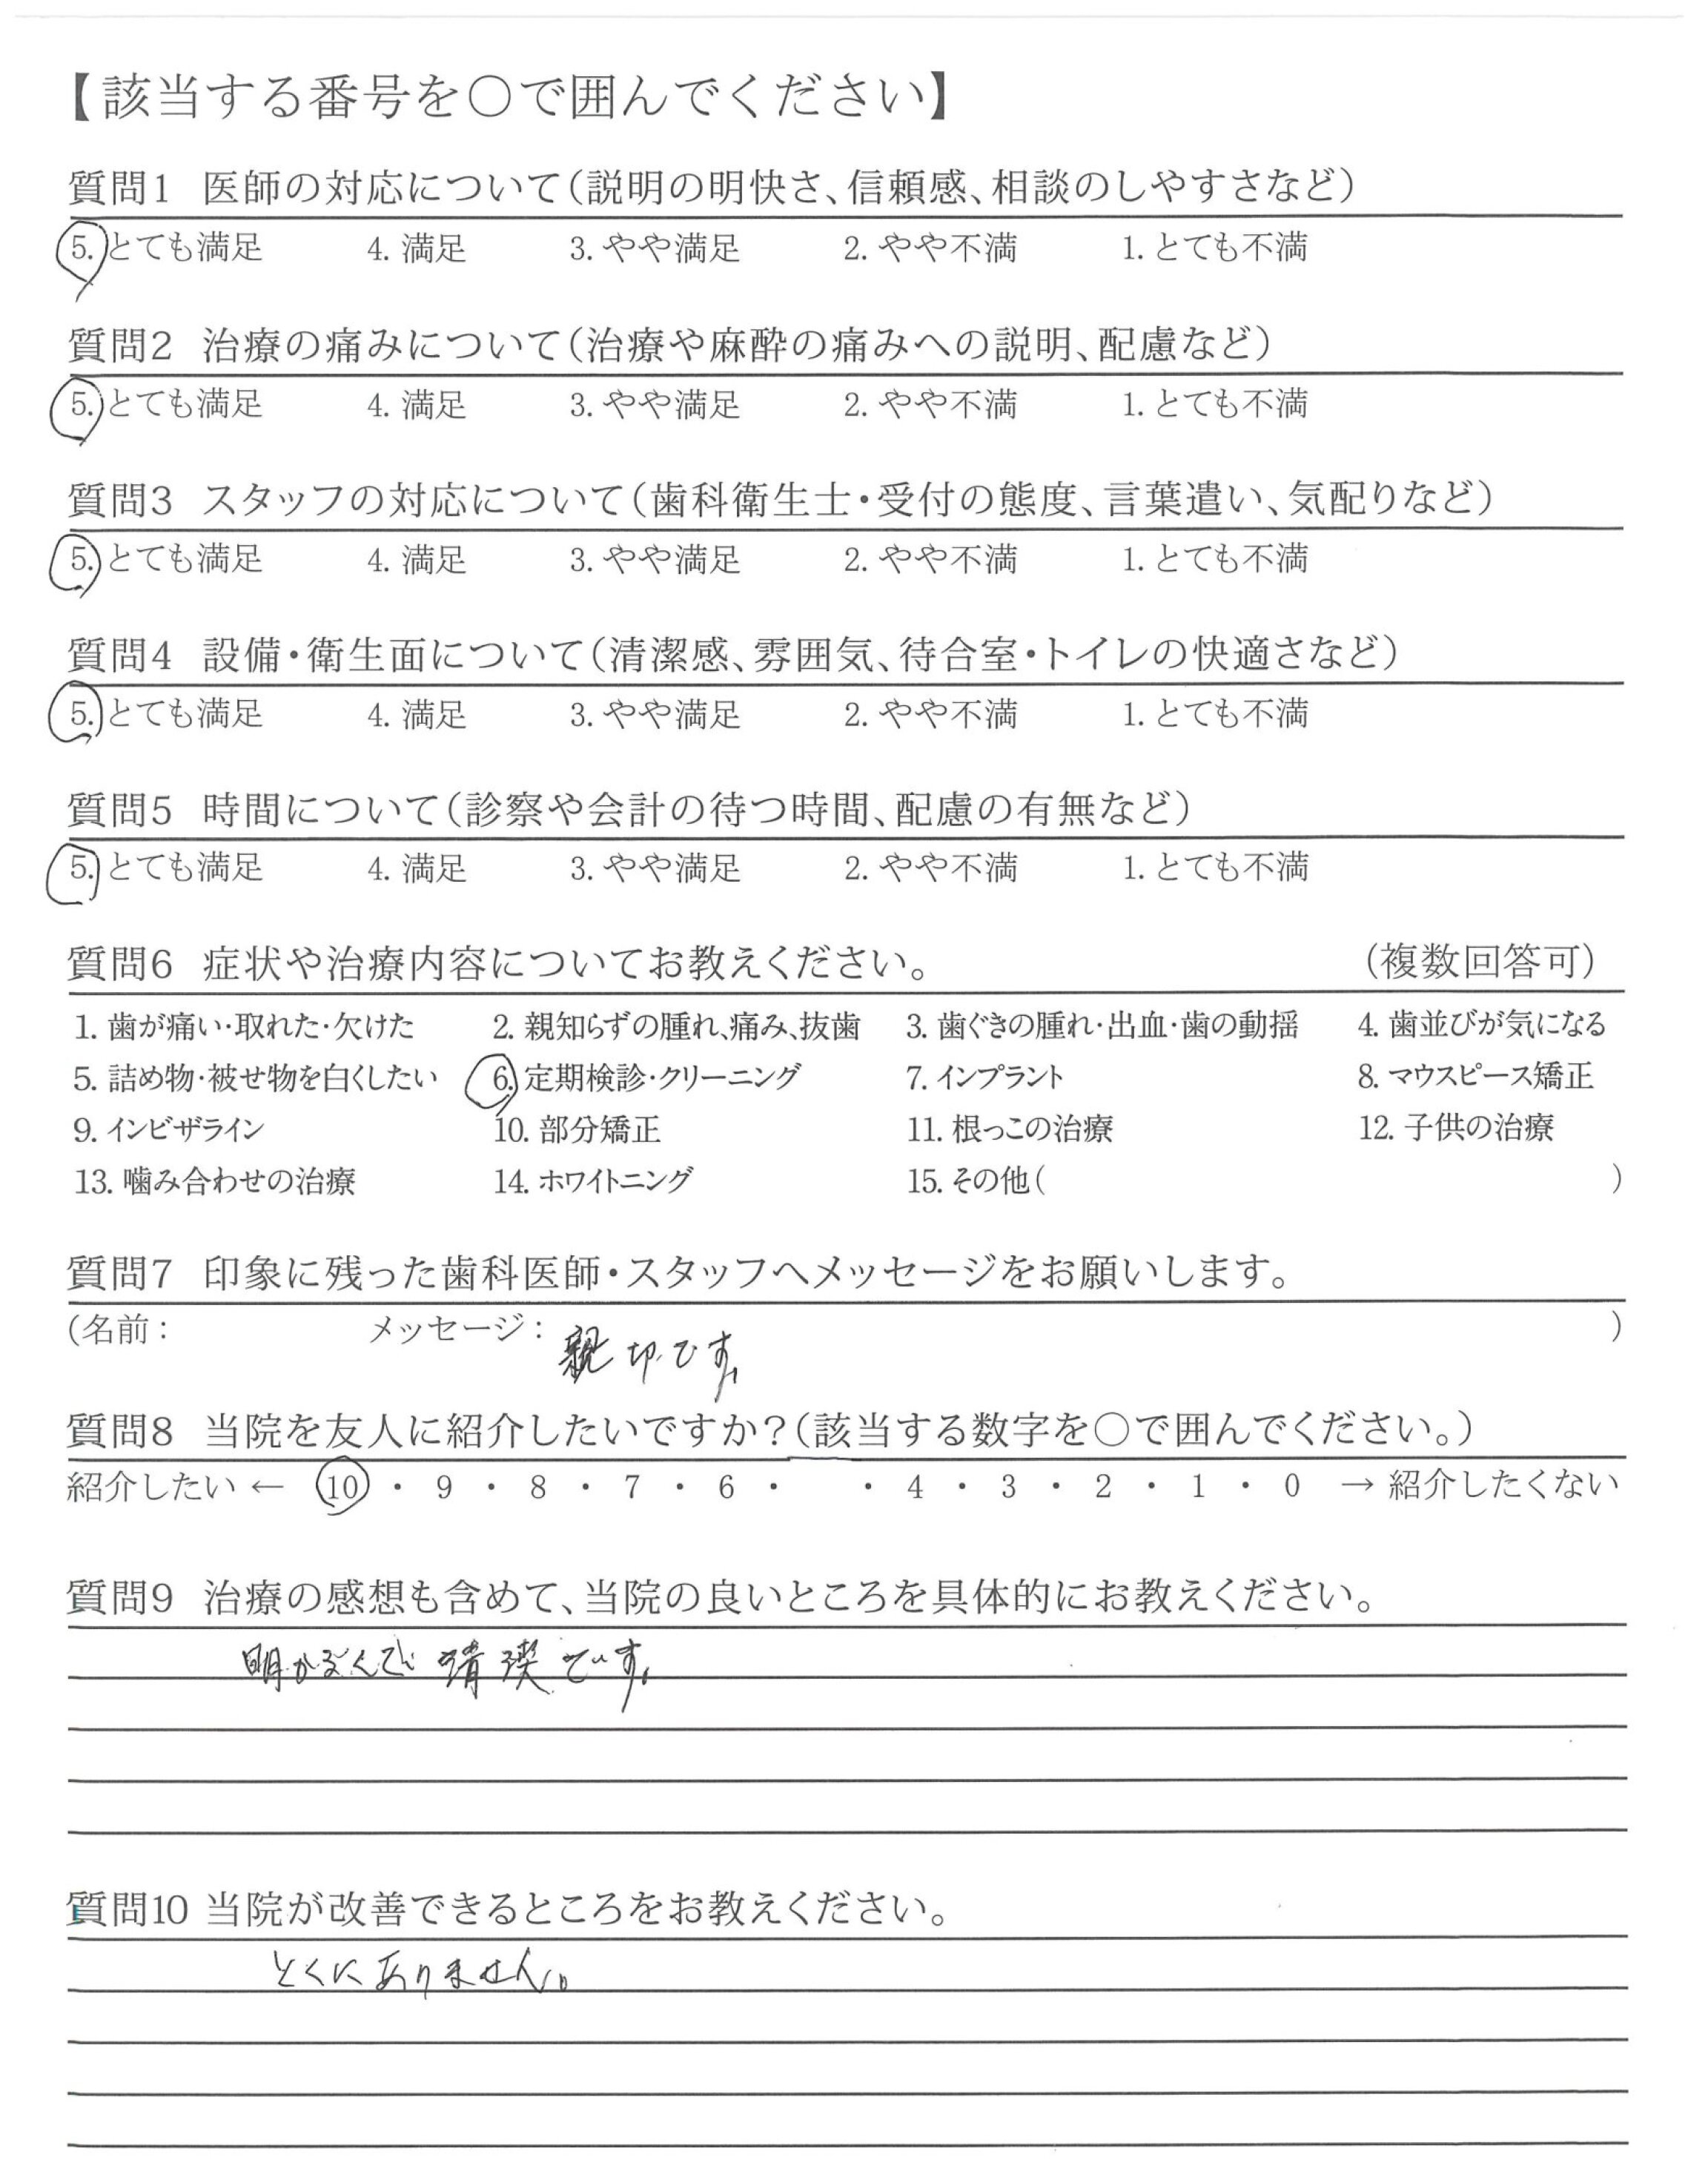 【該当する番号を○で囲んでください】
質問1 医師の対応について(説明の明快さ、信頼感、相談のしやすさなど)
5. とても満足 4. 満足 3. やや満足 2. やや不満 1. とても不満
質問2 治療の痛みについて(治療や麻酔の痛みへの説明、配慮など)
5. とても満足 4. 満足 3. やや満足 2. やや不満 1. とても不満
質問3 スタッフの対応について(歯科衛生士・受付の態度、言葉遣い、気配りなど)
5. とても満足 4. 満足 3. やや満足 2. やや不満 1. とても不満
質問4 設備・衛生面について(清潔感、雰囲気、待合室・トイレの快適さなど)
5. とても満足 4. 満足 3. やや満足 2. やや不満 1. とても不満
質問5 時間について(診察や会計の待つ時間、配慮の有無など)
5. とても満足 4. 満足 3. やや満足 2. やや不満 1. とても不満
質問6 症状や治療内容についてお教えください。 (複数回答可)
1. 歯が痛い・取れた・欠けた 2. 親知らずの腫れ、痛み、抜歯 3. 歯ぐきの腫れ・出血・歯の動揺 4. 歯並びが気になる
5. 詰め物・被せ物を白くしたい 6. 定期検診・クリーニング 7. インプラント 8. マウスピース矯正
9. インビザライン 10. 部分矯正 11. 根っこの治療 12. 子供の治療
13. 噛み合わせの治療 14. ホワイトニング 15. その他( )
質問7 印象に残った歯科医師・スタッフへメッセージをお願いします。
(名前: メッセージ: 親切です。 )
質問8 当院を友人に紹介したいですか?(該当する数字を○で囲んでください。)
紹介したい ← 10 ・ 9 ・ 8 ・ 7 ・ 6 ・ ・ 4 ・ 3 ・ 2 ・ 1 ・ 0 → 紹介したくない
質問9 治療の感想も含めて、当院の良いところを具体的にお教えください。
明かるくて 清潔です。
質問10 当院が改善できるところをお教えください。
とくにありません。